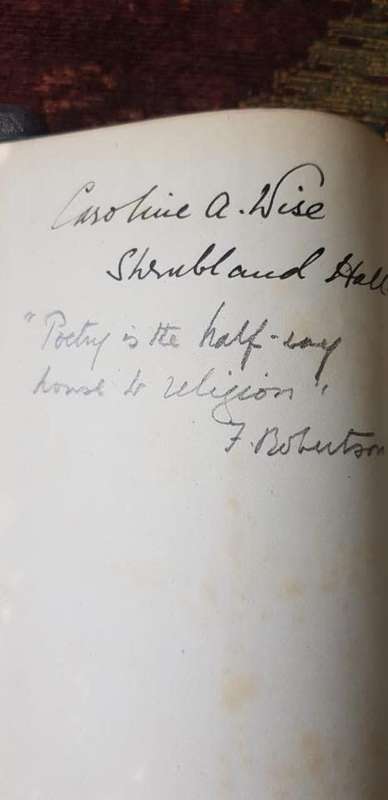 Caroline A. Wise
Shrubland Hall
"Poetry is the half-way
house to religion"
F. Robertson